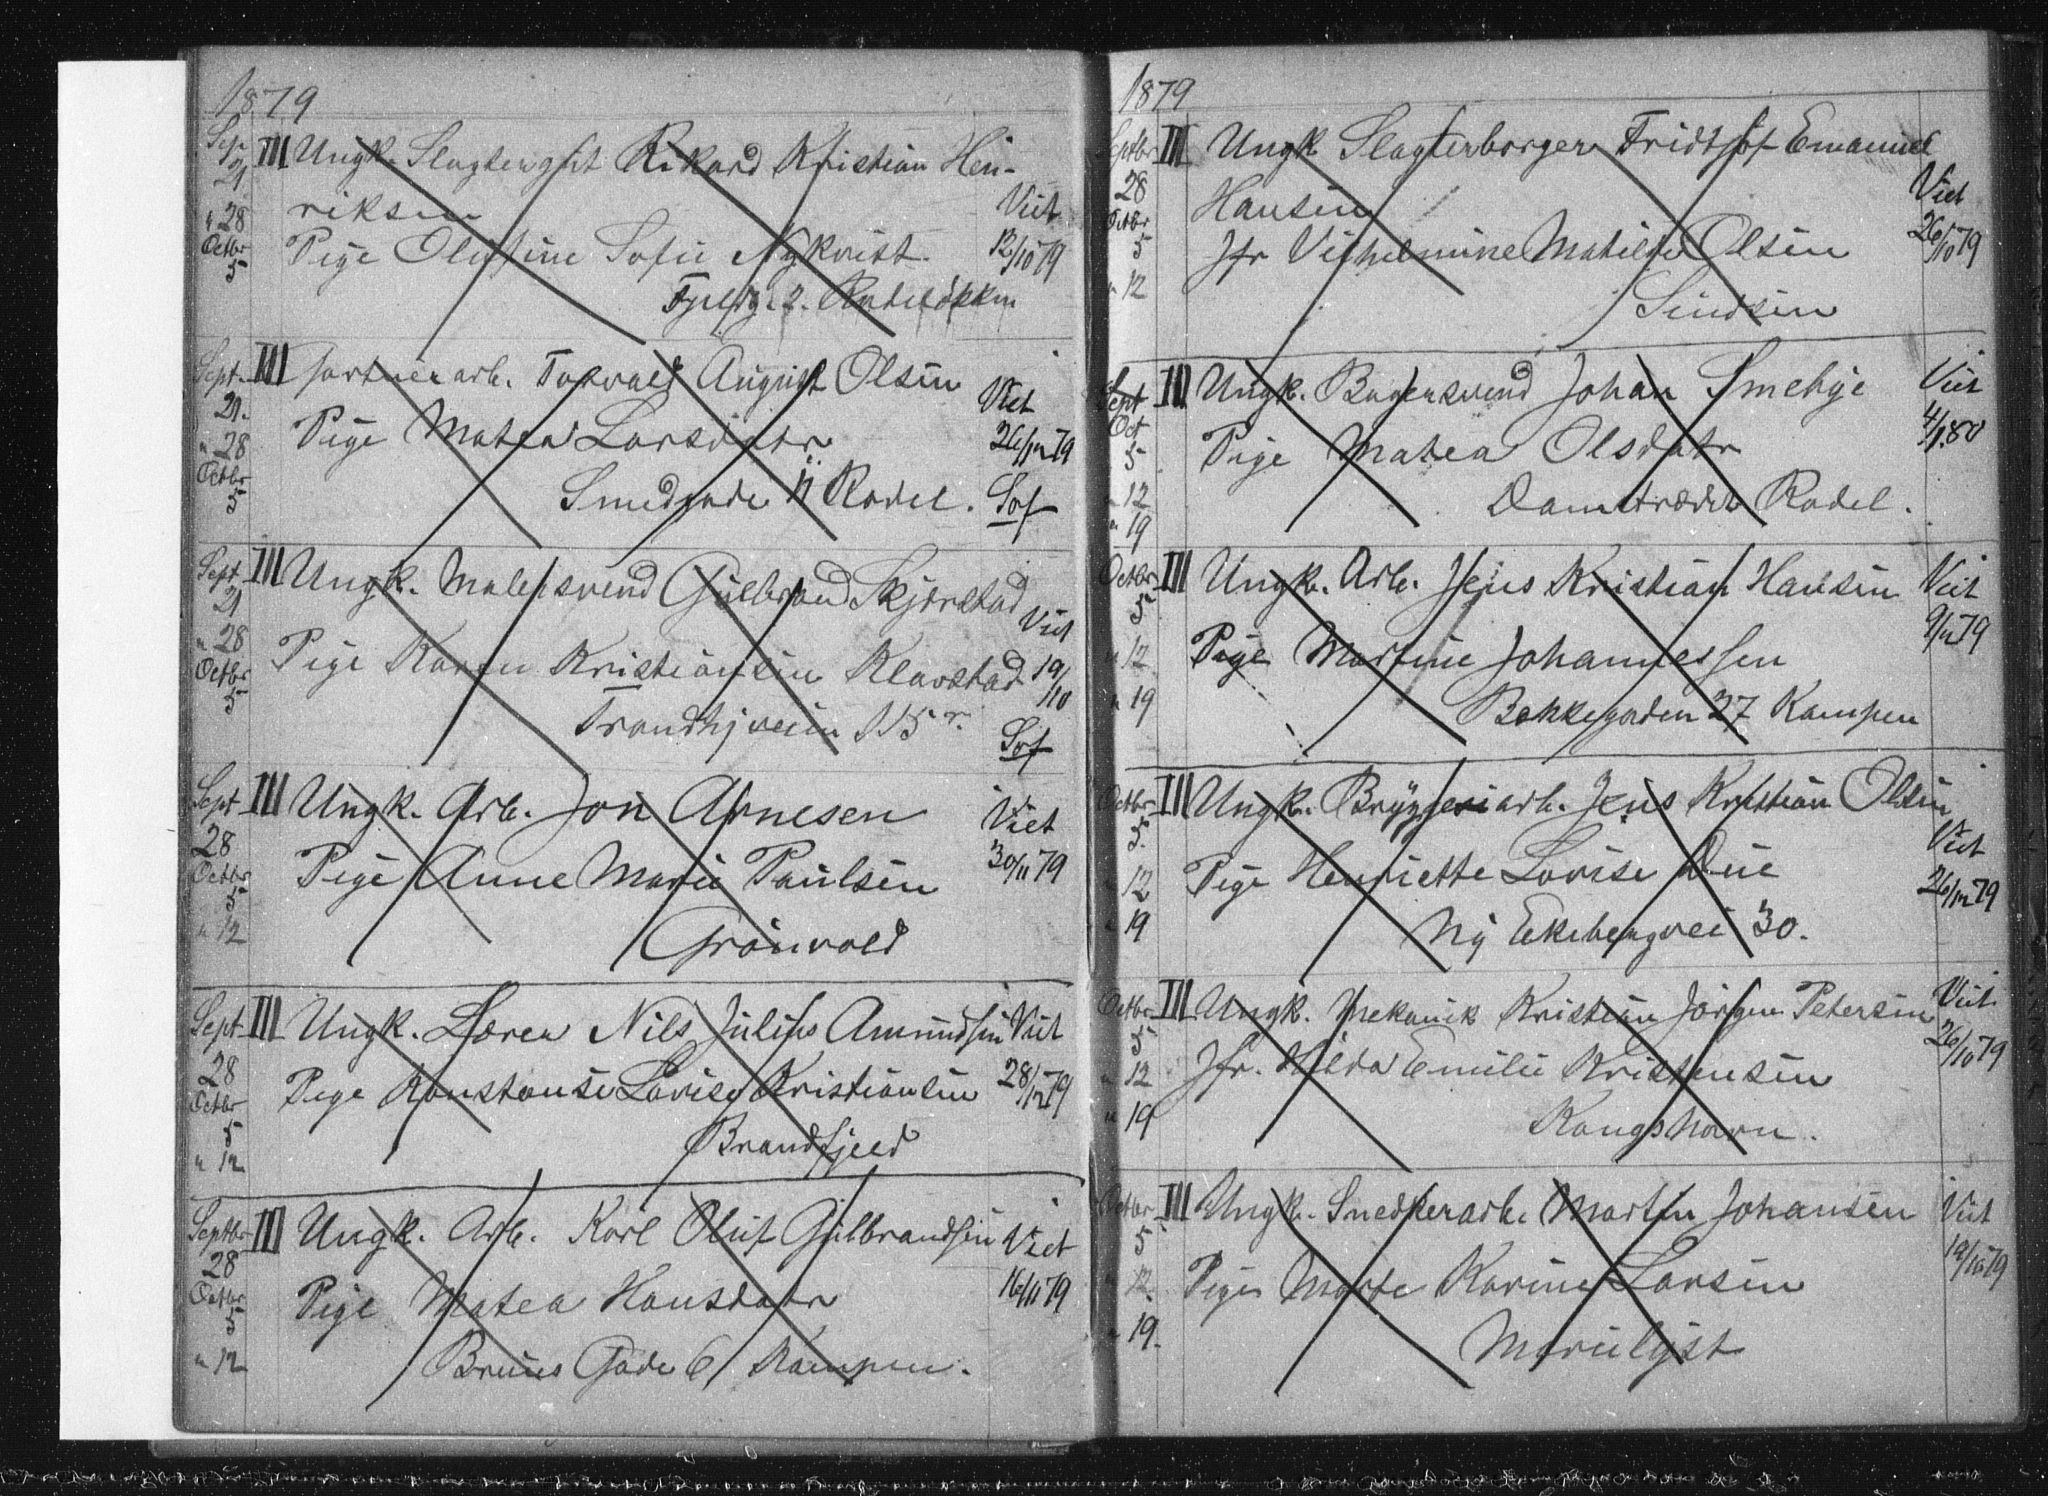 1879
Sep 21 III Ungk. Slagterght Rikard Kristian Hen-
" 28 riksen Viet
Octbr 5 Pige Olefine Sofie Nykvist 12/10 79
Fjeldg. 2. Rodeløkken
Sept. 21. III Gartnerarb. Torvald August Olsen Viet
" 28 Pige Matea Larsdatr 26/12 79
Octbr 5 Smedgade 11 Rodel. Sof
Sept. 21 III Ungk. Malersvend Gulbrand Skjerstad Viet
" 28 Pige Karen Kristiansen Klavestad 19/10
Octbr 5 Trondhjveien 115 Sof
Sept 28 III Ungk. Arb. Jon Arnesen Viet
Octbr 5 Pige Anne Marie Paulsen 30/11 79
" 12 Grönvold
Sept 28 III Ungk. Lærer Nils Julius Amundsen Viet
Octbr 5 Pige Konstanse Lovise Kristiansen 28/12 79
" 12 Brandfjeld
Septbr 28 III Ungk. Arb. Karl Oluf Gulbrandsen Viet
Octbr 5 Pige Matea Hansdatr 16/11 79
" 12 Bruns Gade 6 Kampen.
1879
Septbr 28 III Ungk Slagterborger Fridtjof Emanuel
Hansen Viet
Octbr 5 Jfr Vilhelmine Matilde Olsen 26/10 79
" 12
Sept III Ungk. Bagersvend Johan Smebye Viet
Oct 5 Pige Matea Olsdatr 4/1 80
" 12 Damstrædet Rodel.
" 19
Octbr 5 III Ungk. Arb. Jens Kristian Hansen Viet
" 12 Pige Martine Johannessen 9/11 79
" 19 Bakkegaden 27 Kampen
Octbr 5. III Ungk. Bryggeriarb. Jens Kristian Olsen Viet
" 12 Pige Henriette Lovise Due 26/12 79
" 19 Ny Ekebergvei 30.
Octbr 5 III Ungk. Mekanik Kristian Jörgen Petersen Viet
" 12 Jfr. Hilda Emilie Kristensen 26/10 79
" 19 Kongshavn.
Octbr 5 III Ungk. Snedkerarb. Martin Johansen Viet
" 12. Pige Marte Karine Larsen 19/10 79
" 19. Marielyst